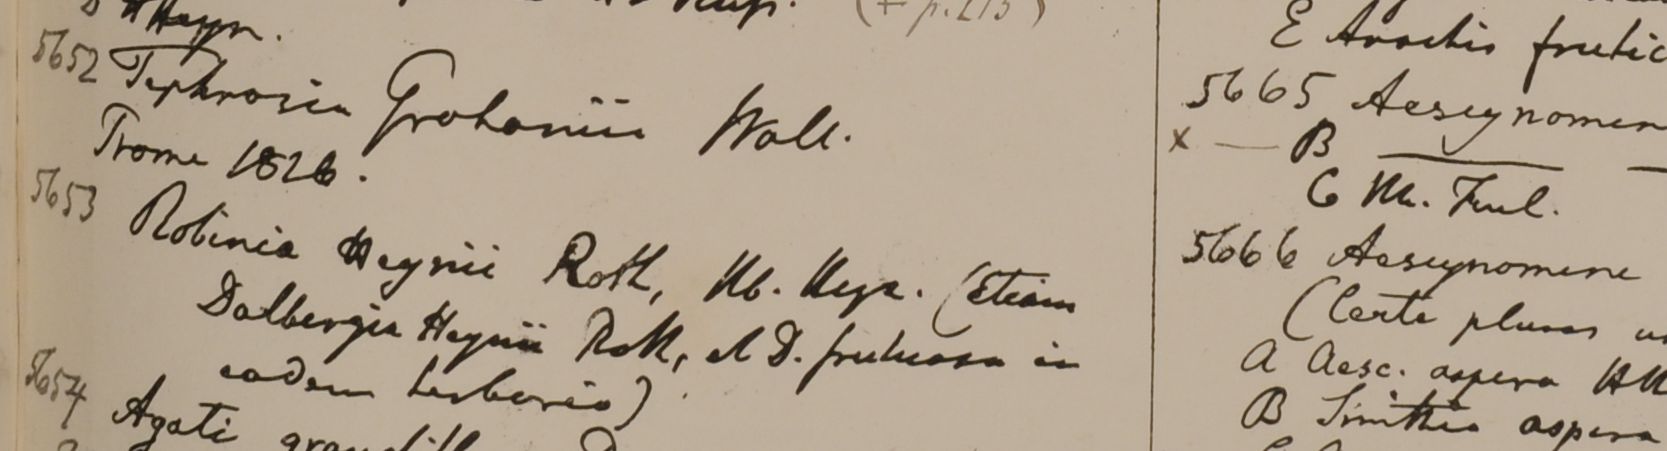 Heyn.
5652 Tephrosia Grahamii Wall.
Prome 1826.
5653 Robinia Heynii Roth, Hb. Heyn. (Etiam
Dalbergia Heynii Roth, et D. frutuosa in
eodem herbario)
5654 Agati
E Arachis frutic
5665 Aeseynomene
x — B —
C M. Ful.
5666 Aeseynomene
(Certe plures
A Aesc. aspera
B Smithia aspera